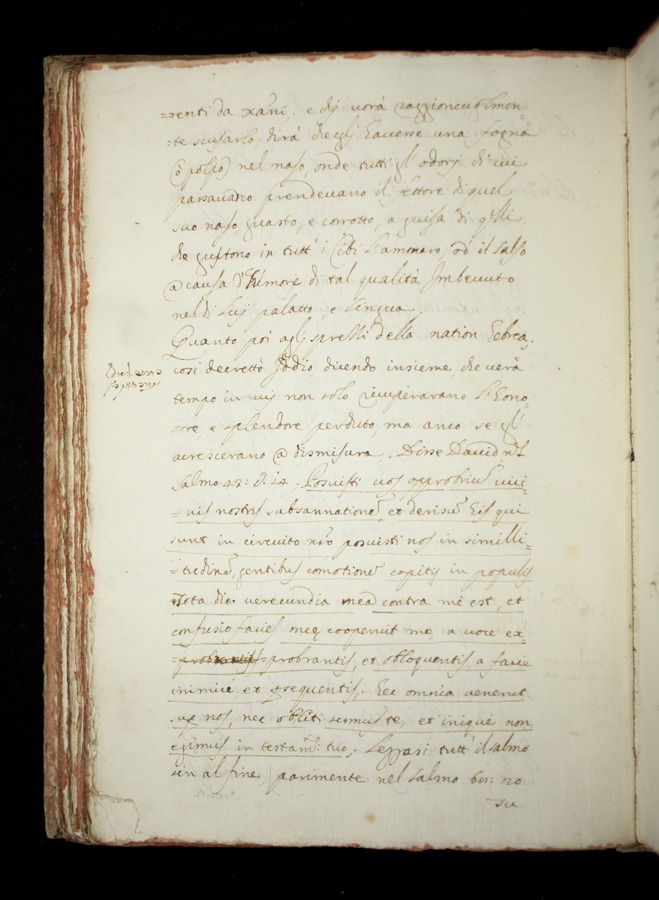 =renti da xani. e chi vorà raggionevolmen=
=te scusarlo, dirà ch'egli havesse una fogna
(ò polpo) nel naso, onde tutti gl'odori di cui
passavano prendevano il fettore di quel
suo naso guasto, e corrotto, a guisa di q'lli
che gustono in tutt'i cibi l'ammaro, od' il salso
a causa d'humore di tal qualità imbevuto
nel di lui palatto, e lingua.
Quanto poi agli sprezzi della nation hebrea,
cosi decretò Iddio dicendo insieme che verà
tempo in cui non solo ricuperavano l'hono=
=re, e splendore perduto, ma anco se gl'
accrescerano a dismisura. Disse David nel
salmo 43: v. 14. Posuisti nos opprobriu' vici=
=nis nostris subsannatione', et derisu' his qui
sunt in circuito n'ro posuisti nos in simili=
=tudine', gentibus comotione' capitis in populis
Tota die verecundia mea contra me est, et
confusio faciei meę cooperuit me, a voce ex
=probrantis, et obloquentis, a facie
inimici et persequentis. Hec omnia venerut
sup nos, nec obliti sumus te, et inique non
egimus in testam: tuo, Leggasi tutt'il salmo
sin al fine, parimente nel salmo 68: 20
su